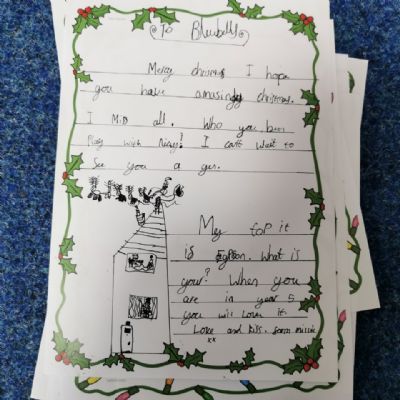 To Bluebells
Merry chrismes I hope
you have amusingdy christmas.
I Miss all. Who you been
Play with Missy? I cant wait to
See you a gen.
My fop it
is Egyption. What is
your? When you
are in year 5
you will Love it.
Love and kiss. form missie
xx